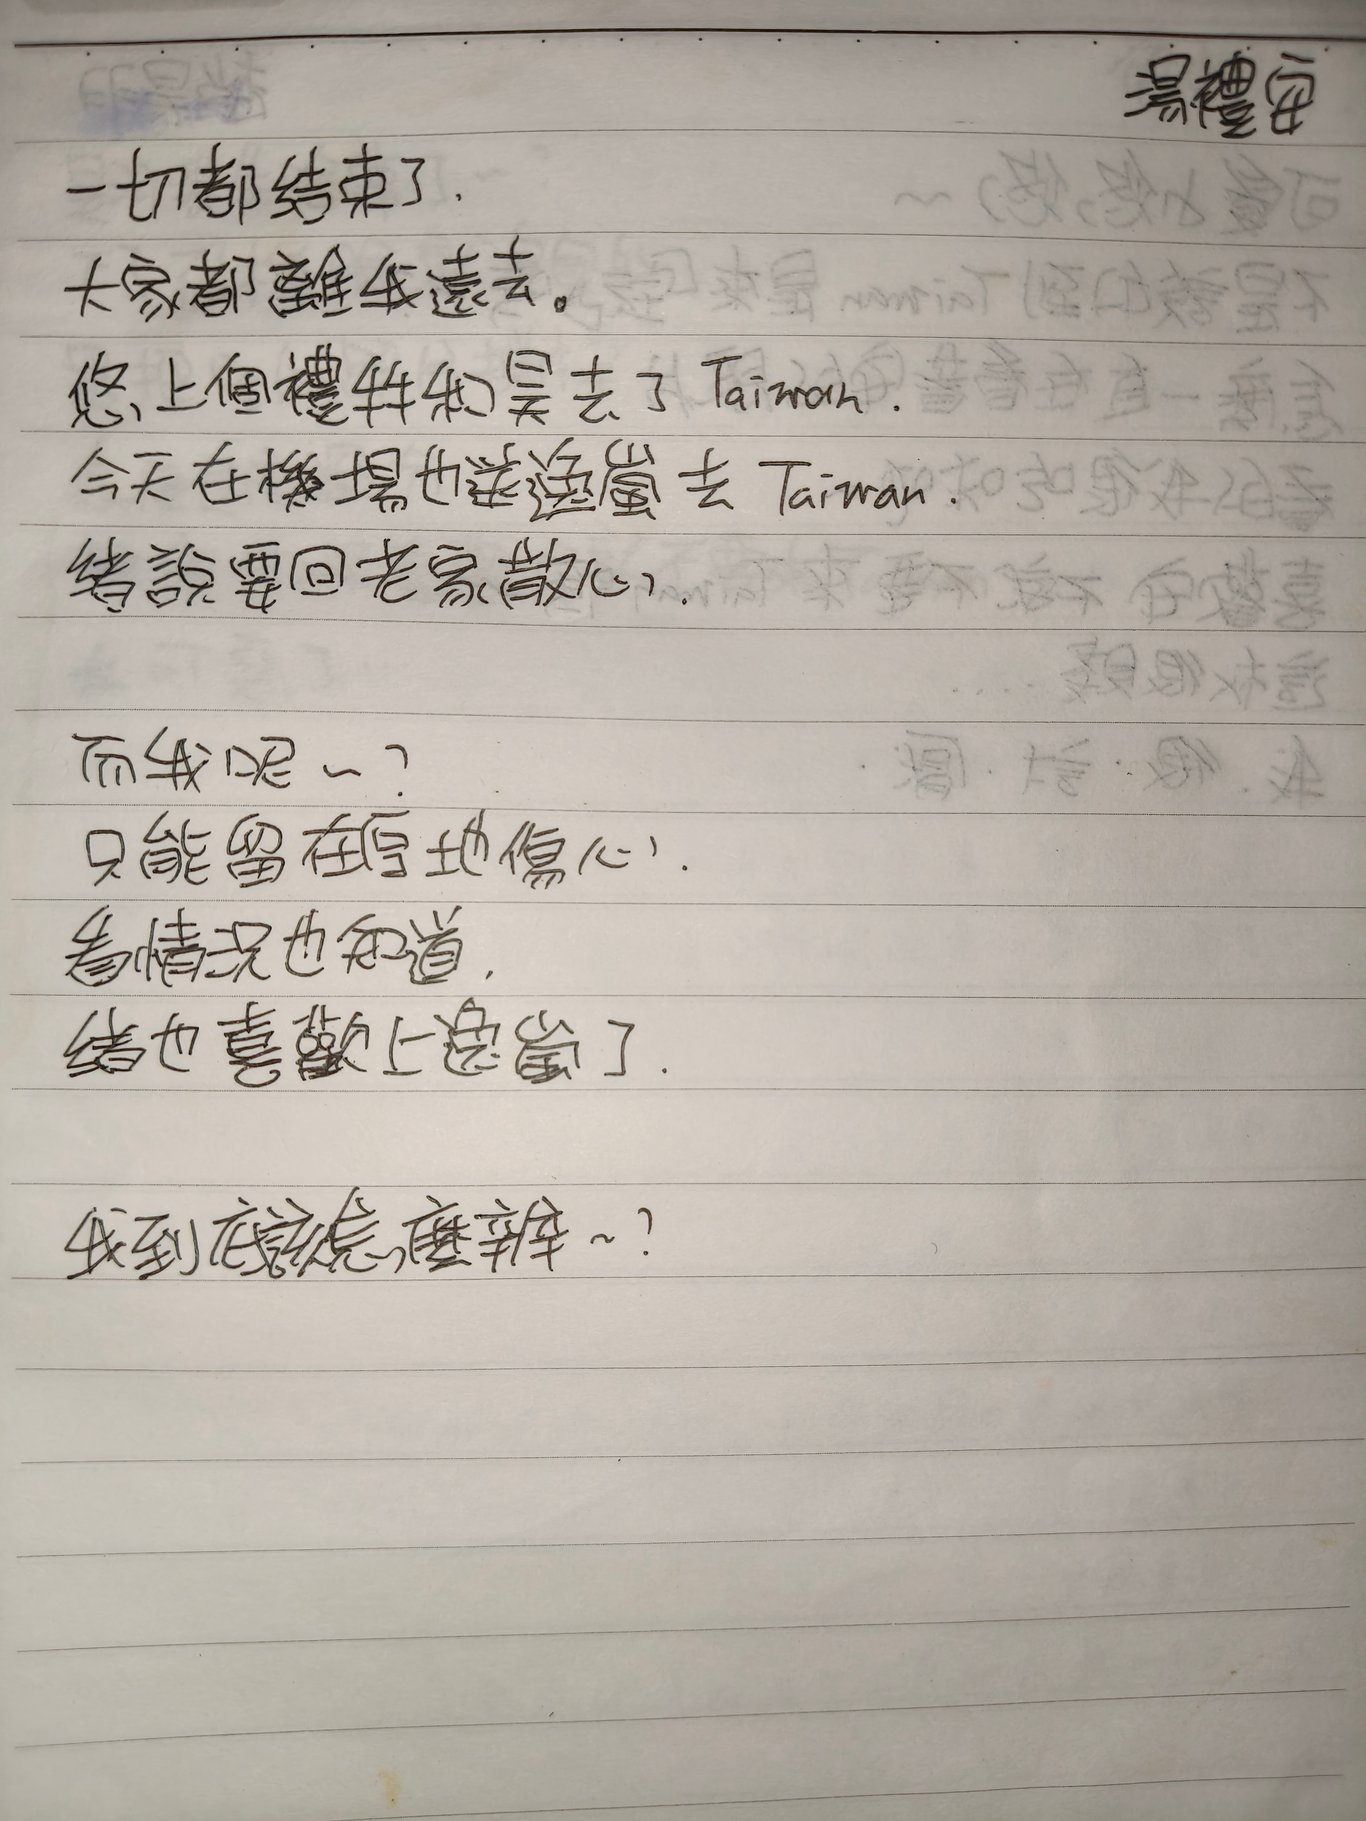 湯禮安
一切都結束了.
大家都離我遠去。
悠上個禮拜和昊去了Taiwan.
今天在機場也送嵐去Taiwan.
緒說要回老家散心.
而我呢~?
只能留在原地傷心.
看情況也知道,
緒也喜歡上嵐了.
我到底該怎麼辦~?